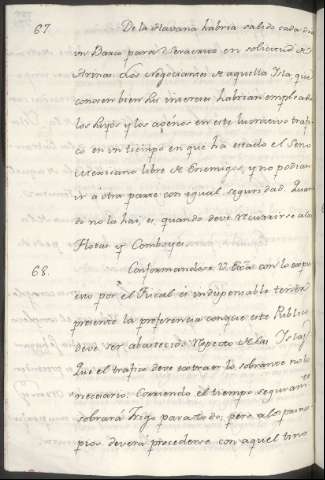 67 De la Havana habria salido cada dia
un Barco para Veracruz en solicitud de
Arinas. Los Negociantes de aquella Isla, que
conocen bien su interes, habrian empleado
los suyos, y los agenos en este lucrativo trafi
co en un tiempo en que ha estado el Seno
Mexicano libre de Enemigos, y no podian
ir á otra parte con igual seguridad. Quan
do no la hai, es quando deve recurrirse a las
Flotas y Comboyes.
68. Conformandose V. Exã. con lo expu
esto por el Fiscal és indispensable tener
presente la preferencia con que este Publico
deve ser abastecido respecto de las Islas.
Que el trafico deve extraer lo sobrante no lo
necesario: Corriendo el tiempo seguramte
sobrará Trigo para todo; pero a los prin
pios deverá procederse con aquel tino